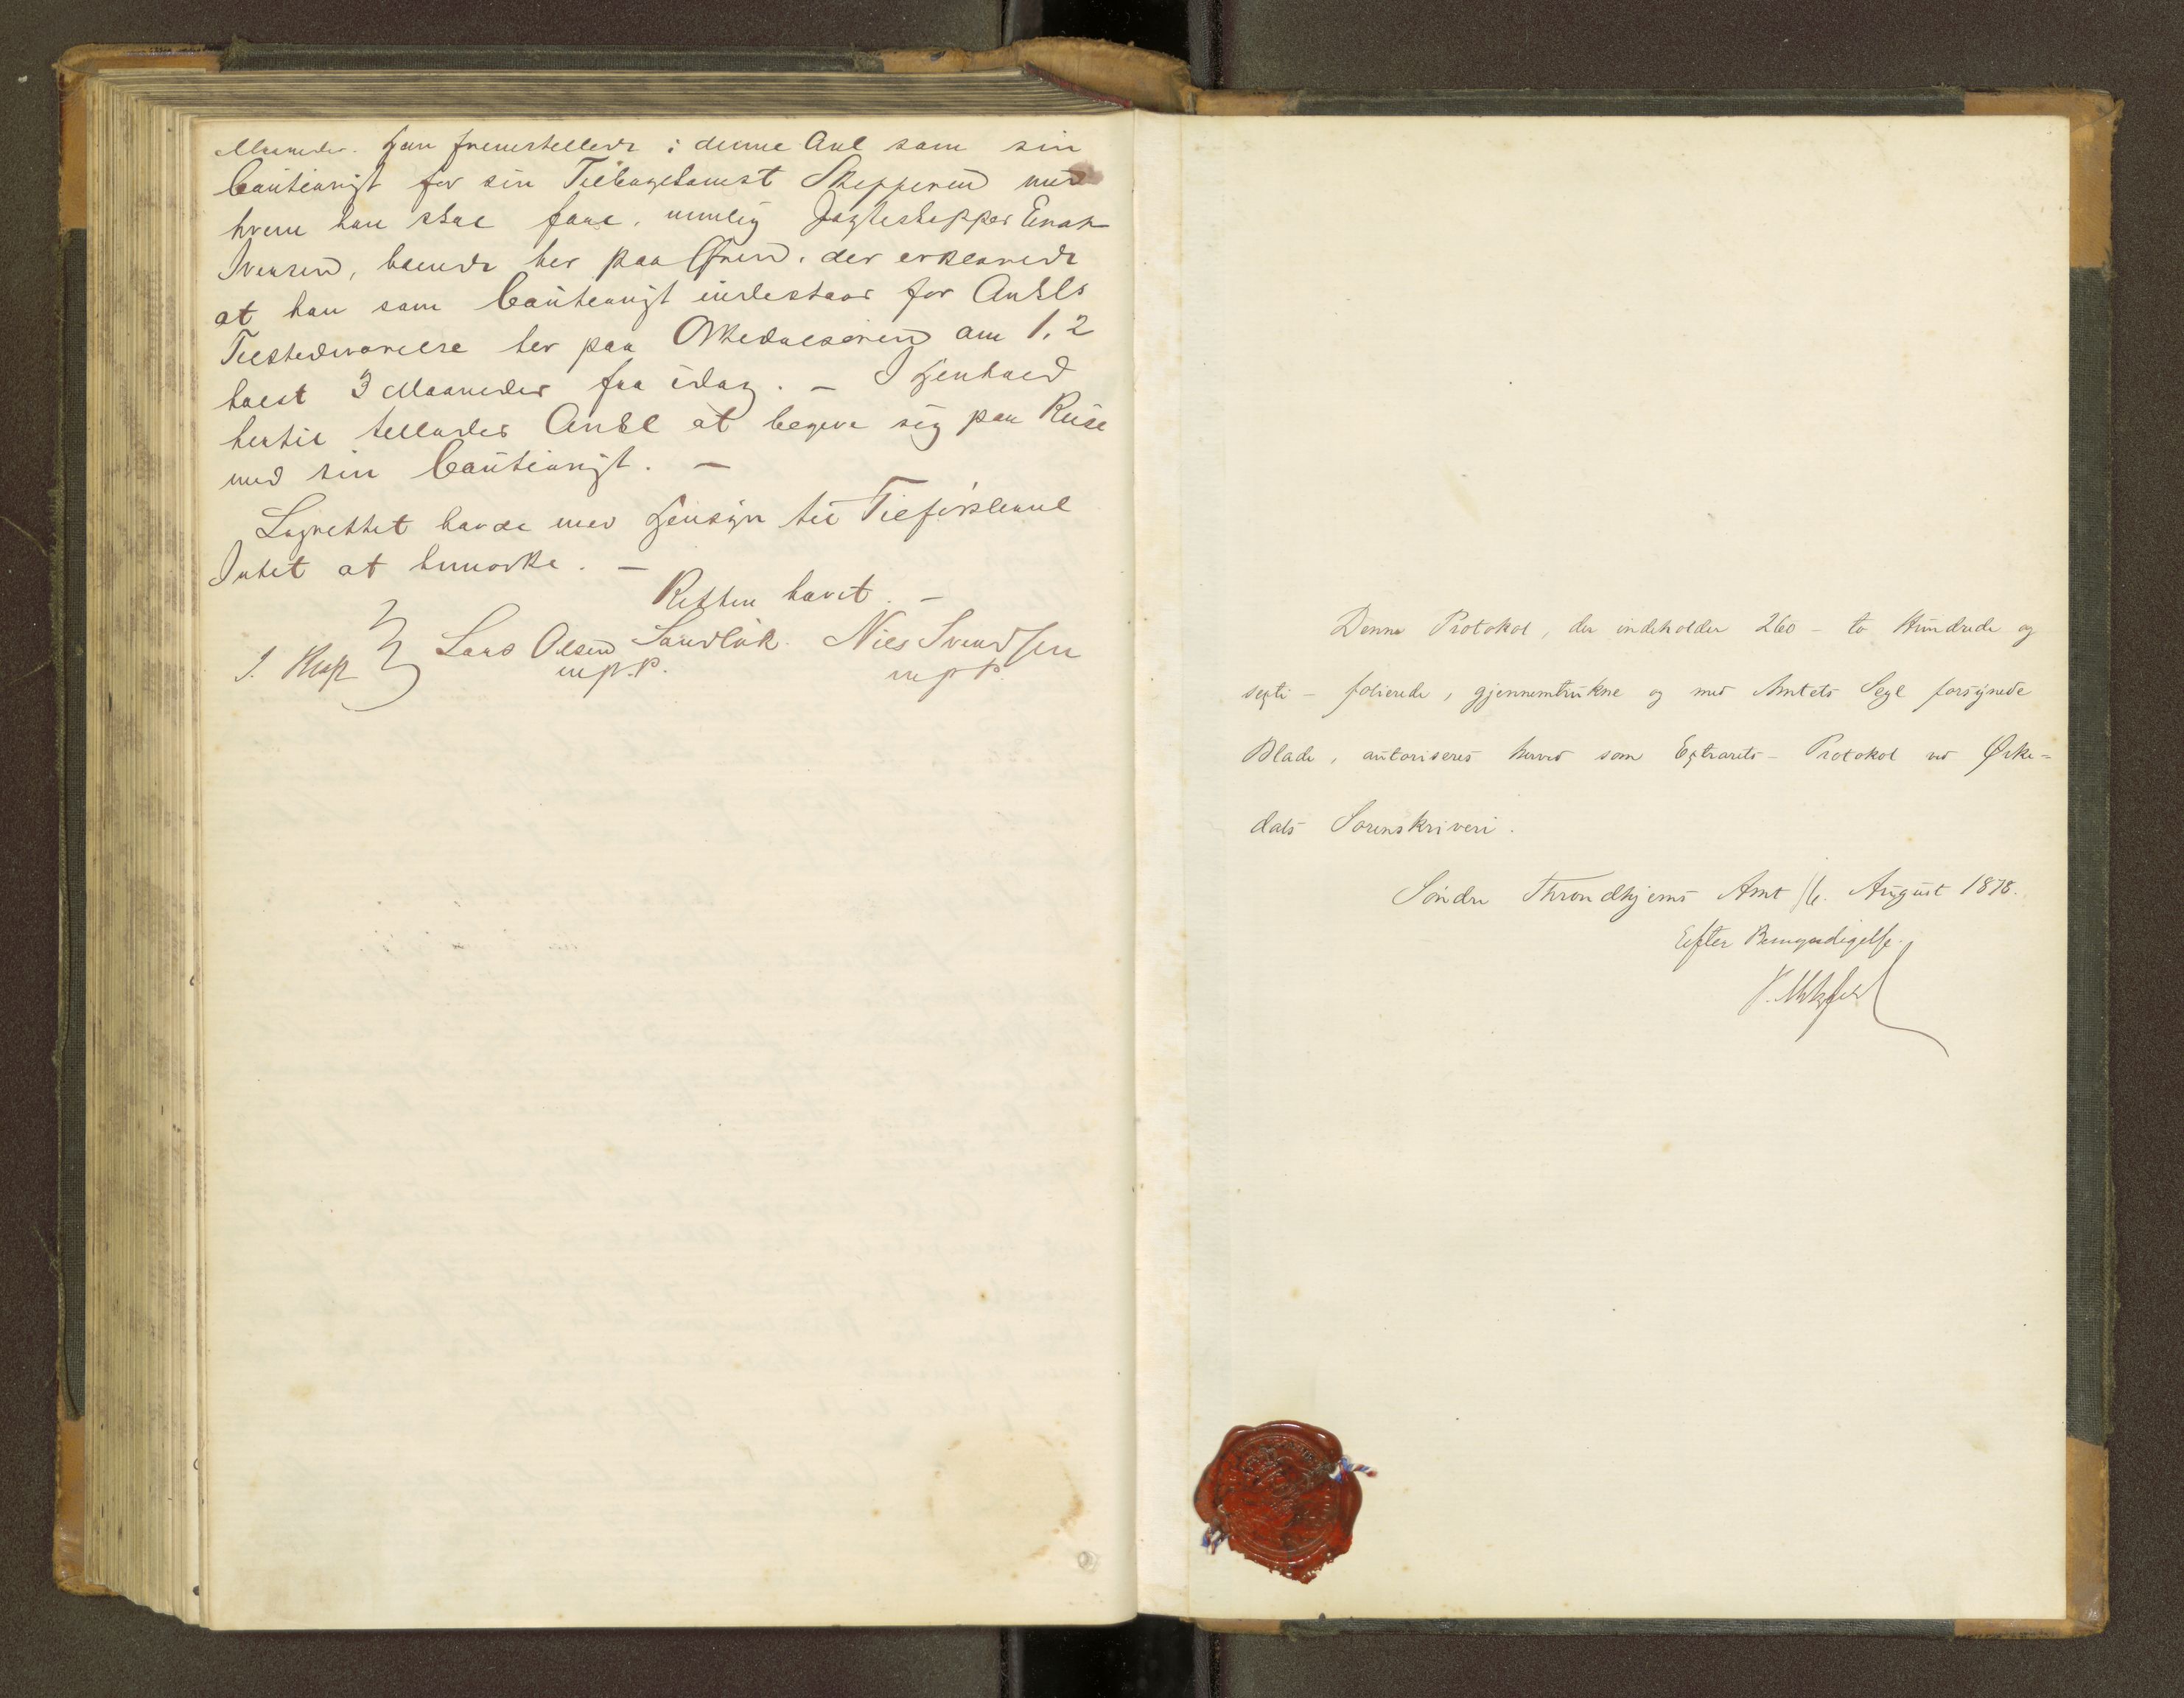 Maaneder. Han fremstillede i denne Anl som sin
Cautionist for sin Tilbagekomst Skipperen med
hvem han skal fare, nemlig Jagteskipper Enok
Iversen, boende her paa Øren, der erklærede
at han som Cautionist indestaar for Ankls
Tilstedeværelse her paa Orkedalsøren om 1, 2
høist 3 Maaneder fra idag. – I Henhold
hertil tillodes Ankl at begive sig paa Reise
med sin Cautionist. –
Lagrettet havde med Hensyn til Tilførslerne
Intet at bemærke. –
Retten hævet. –
Lars Olsen Sandløk. Nils Svendsen
m.p.P. m.p.P.
Denne Protokol, der indeholder 260 – to Hundrede og
sexti – folierede, gjennemtrukne og med Amtets Segl forsynede
Blade, autoriseres herved som Extrarets-Protokol ved Orke-
dals Sorenskriveri.
Søndre Throndhjems Amt 16. August 1878.
Efter Bemyndigelse.